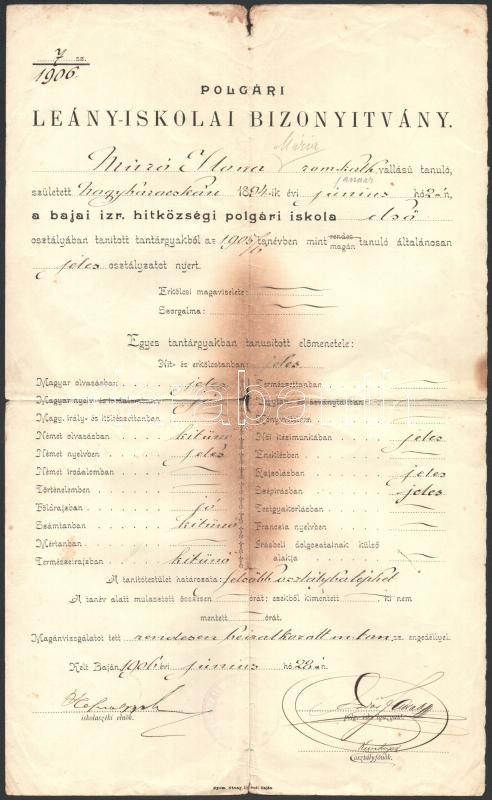 7 sz.
1906
POLGÁRI
LEÁNY-ISKOLAI BIZONYITVÁNY.
Mária
Ilona rom. kath. vallású tanuló,
január
született 1894-ik évi június hó 2-án,
a bajai izr. hitközségi polgári iskola első
osztályában tanitott tantárgyakból az 1905/6 tanévben mint rendes magán tanuló általánosan
jeles osztályzatot nyert.
Erkölcsi magaviselete:
Szorgalma:
Egyes tantárgyakban tanusitott előmenetele:
Hit- és erkölcstanban jeles
Magyar olvasásban jeles Természettanban
Magyar nyelv- és irodalomban
Magy. irály- és költészettanban Könyvvitelben
Német olvasásban kitünő Női kézimunkában jeles
Német nyelvben jeles Éneklésben
Német irodalomban Rajzolásban jeles
Történelemben Szépirásban jeles
Földrajzban jó Testgyakorlásban
Számtanban kitünő Francia nyelvben
Mértanban Irásbeli dolgozatainak külső alakja
Természetrajzban kitünő
A tanítótestület határozata: felsőbb osztályba léphet
A tanév alatt mulasztott összesen órát; ezekből kimentett ki nem
mentett órát.
Magánvizsgálatot tett rendesen beiratkozott m. tan. sz. engedélyel.
Kelt Baján, 1906 évi június hó 28-án.
iskolaszéki elnök.
osztályfőnök.